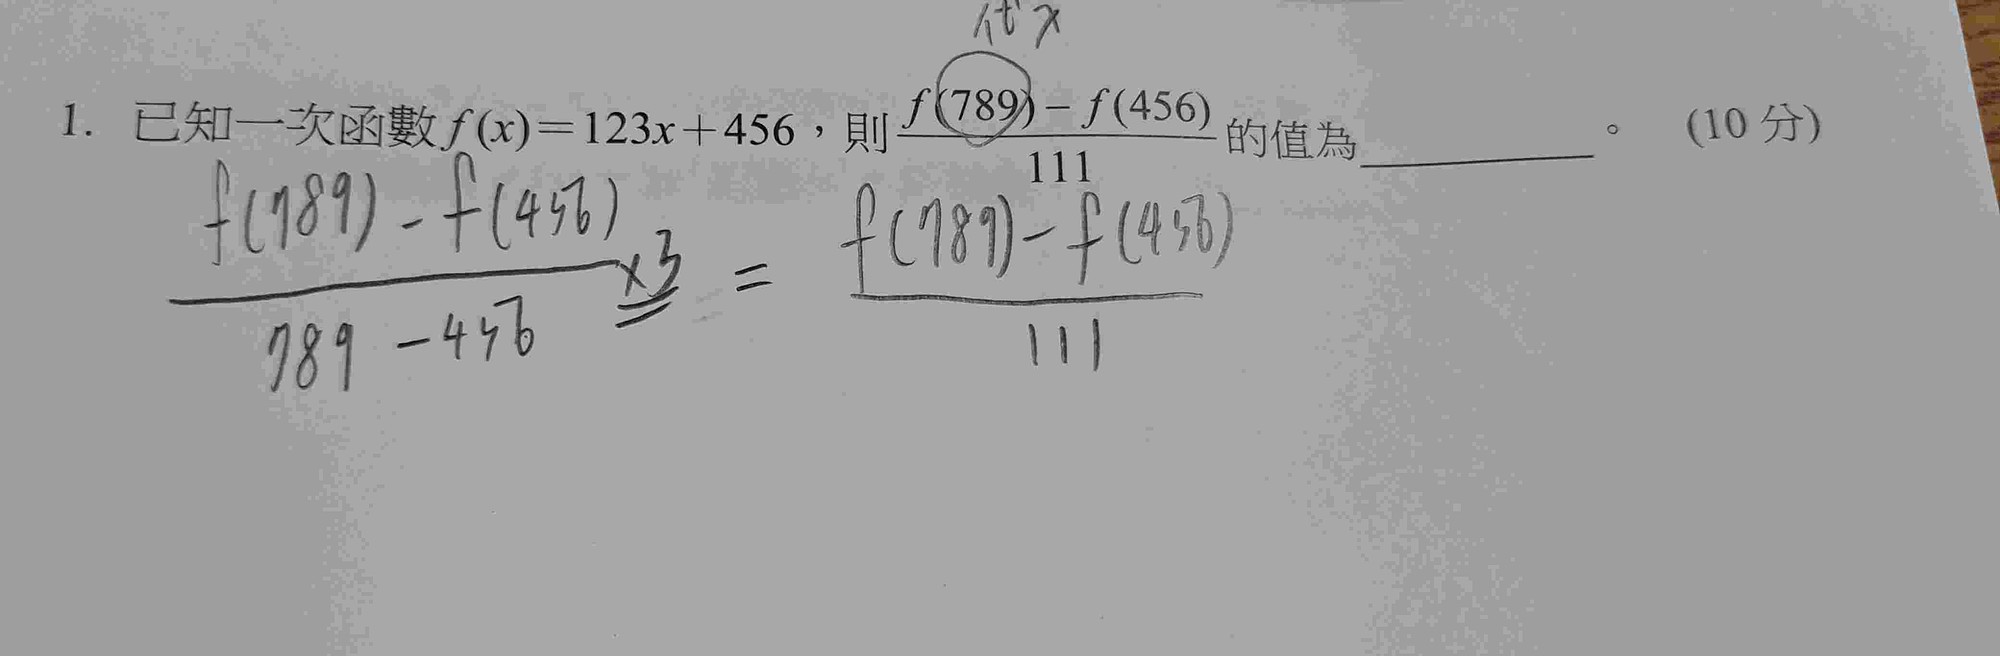 代x
1. 已知一次函數 f(x)=123x+456，則 \frac{f(789)-f(456)}{111} 的值為________。 (10 分)
\frac{f(789)-f(456)}{789-456} ×3 = \frac{f(789)-f(456)}{111}